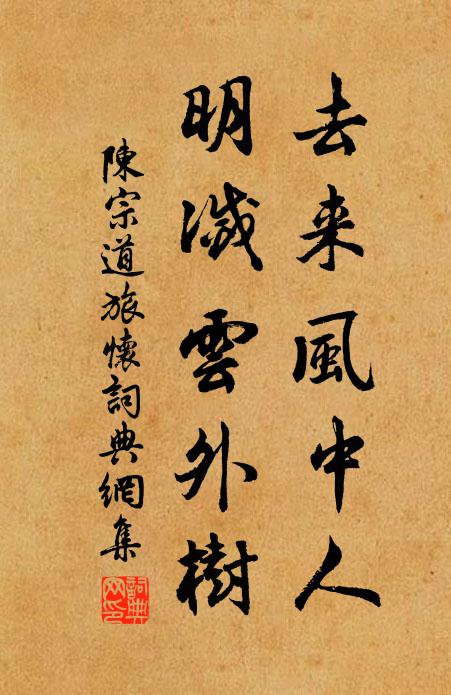 去来風中人
明滅雲外樹
陳宗道旅懷詞典網集
詞典網印